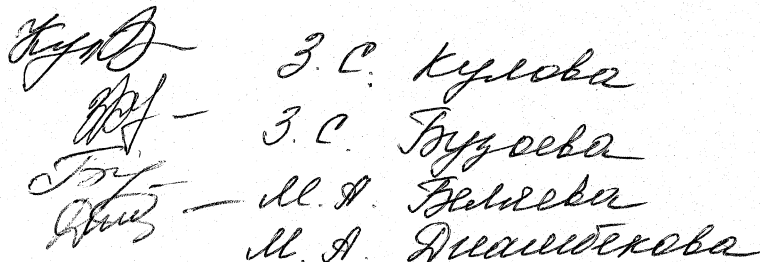 З. С. Кулова
З. С. Бузоева
М. А. Беляева
М. А. Диамбекова